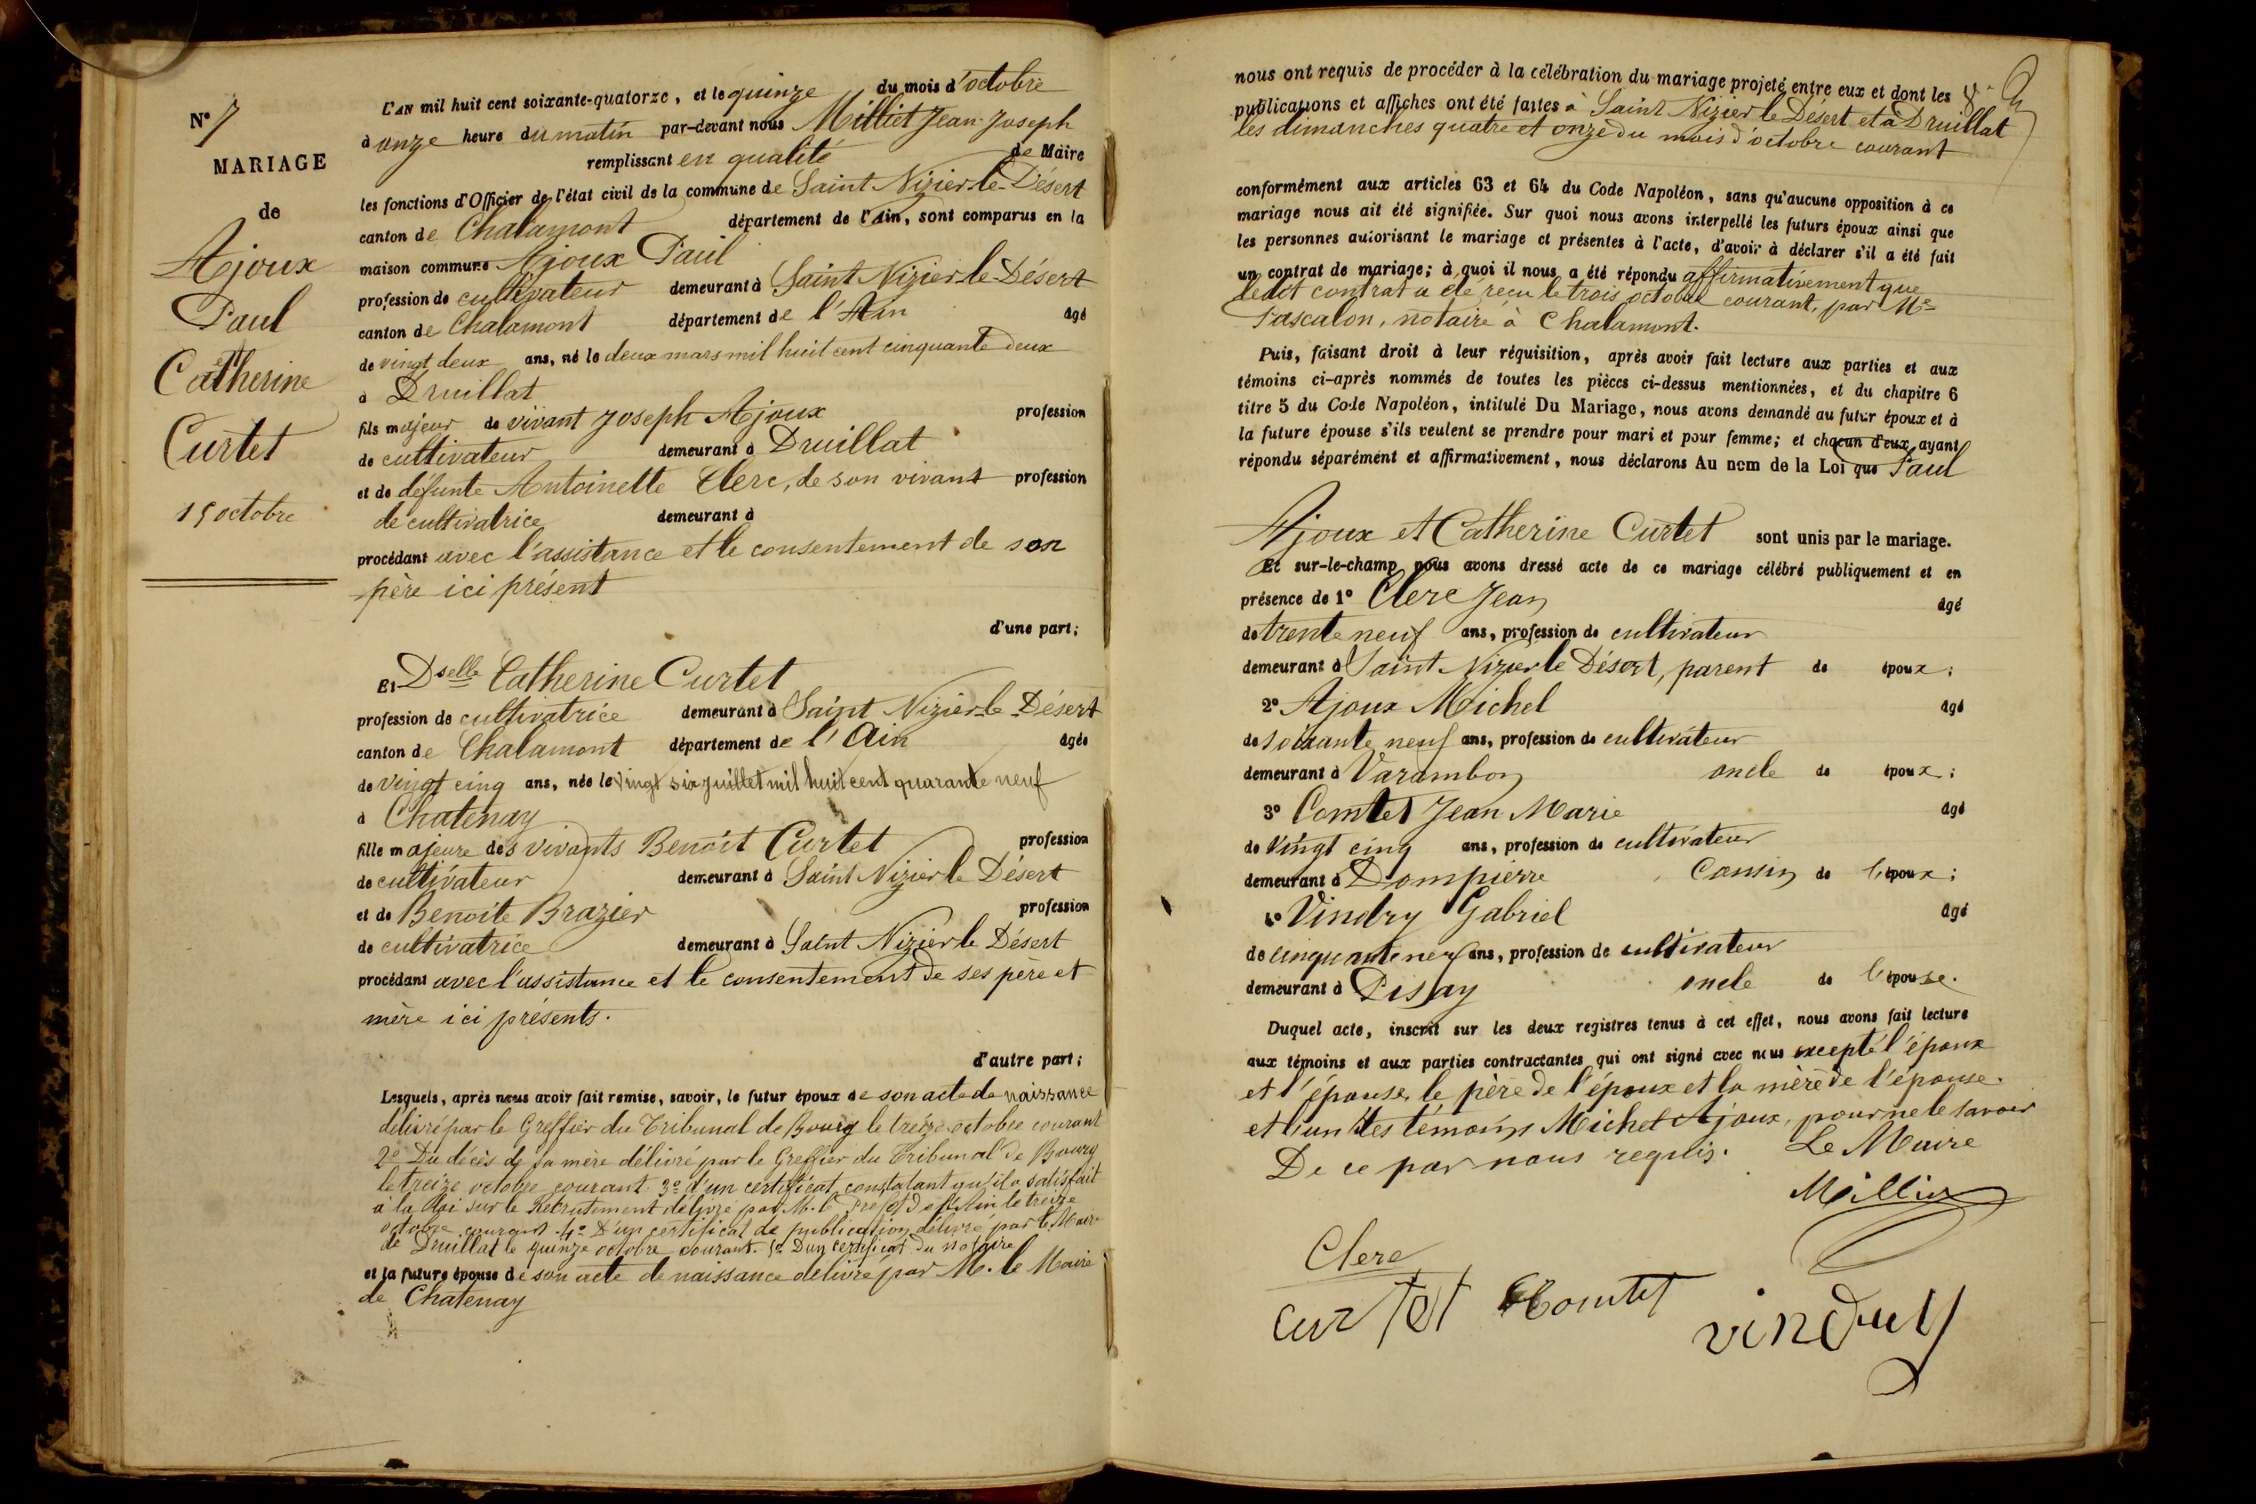 N° 7
MARIAGE
de
Ajoux
Paul
et
Catherine
Curtet
15 octobre
L'AN mil huit cent soixante-quatorze, et le quinze du mois d'octobre
à onze heure du matin par-devant nous Milliet Jean Joseph
remplissant en qualité de Maire
les fonctions d'Officier de l'état civil de la commune de Saint Nizier-le-Désert
canton de Chalamont département de l'Ain, sont comparus en la
maison commune Ajoux Paul
profession de cultivateur demeurant à Saint Nizier-le-Désert
canton de Chalamont département de l'Ain âgé
de vingt deux ans, né le deux mars mil huit cent cinquante deux
à Druillat
fils majeur de vivant Joseph Ajoux profession
de cultivateur demeurant à Druillat
et de défunte Antoinette Clerc, de son vivant profession
de cultivatrice demeurant à
procédant avec l'assistance et le consentement de son
père ici présent
d'une part;
Et Dselle Catherine Curtet
profession de cultivatrice demeurant à Saint Nizier-le-Désert
canton de Chalamont département de l'Ain âgée
de vingt cinq ans, née le vingt six juillet mil huit cent quarante neuf
à Chatenay
fille majeure des vivants Benoit Curtet profession
de cultivateur demeurant à Saint Nizier le Désert
et de Benoite Brazier profession
de cultivatrice demeurant à Saint Nizier le Désert
procédant avec l'assistance et le consentement de ses père et
mère ici présents.
d'autre part;
Lesquels, après nous avoir fait remise, savoir, le futur époux de son acte de naissance
délivré par le Greffier du Tribunal de Bourg le treize octobre courant
2° Du décès de sa mère délivré par le Greffier du Tribunal de Bourg
le treize octobre courant 3° d'un certificat constatant qu'il a satisfait
à la Loi sur le Recrutement délivré par M. le Préfet de l'Ain le treize
octobre courant. 4° D'un certificat de publication délivré par le Maire
de Druillat le quinze octobre courant. 5° D'un certificat du notaire
et la future épouse de son acte de naissance délivré par M. le Maire
de Chatenay
nous ont requis de procéder à la célébration du mariage projeté entre eux et dont les
publications et affiches ont été faites à Saint Nizier le Désert et à Druillat
les dimanches quatre et onze du mois d'octobre courant
conformément aux articles 63 et 64 du Code Napoléon, sans qu'aucune opposition à ce
mariage nous ait été signifiée. Sur quoi nous avons interpellé les futurs époux ainsi que
les personnes autorisant le mariage et présentes à l'acte, d'avoir à déclarer s'il a été fait
un contrat de mariage; à quoi il nous a été répondu affirmativement que
ledit contrat a été reçu le trois octobre courant, par Me
Pascalon, notaire à Chalamont.
Puis, faisant droit à leur réquisition, après avoir fait lecture aux parties et aux
témoins ci-après nommés de toutes les pièces ci-dessus mentionnées, et du chapitre 6
titre 5 du Code Napoléon, intitulé Du Mariage, nous avons demandé au futur époux et à
la future épouse s'ils veulent se prendre pour mari et pour femme; et chacun d'eux ayant
répondu séparément et affirmativement, nous déclarons Au nom de la Loi que Paul
Ajoux et Catherine Curtet sont unis par le mariage.
Et sur-le-champ nous avons dressé acte de ce mariage célébré publiquement et en
présence de 1° Clerc Jean âgé
de trente neuf ans, profession de cultivateur
demeurant à Saint Nizier le Désert, parent de époux;
2° Ajoux Michel âgé
de soixante neuf ans, profession de cultivateur
demeurant à Varambon oncle de époux;
3° Comtet Jean Marie âgé
de vingt cinq ans, profession de cultivateur
demeurant à Dompierre Cousin de l'époux;
4° Vindry Gabriel âgé
de cinquante neuf ans, profession de cultivateur
demeurant à Pisay oncle de l'épouse.
Duquel acte, inscrit sur les deux registres tenus à cet effet, nous avons fait lecture
aux témoins et aux parties contractantes qui ont signé avec nous excepté l'époux
et l'épouse, le père de l'époux et la mère de l'épouse.
et l'un des témoins Michel Ajoux, pour ne le savoir
De ce par nous requis. Le Maire
Milliet
Clerc
curtet Comtet vindry